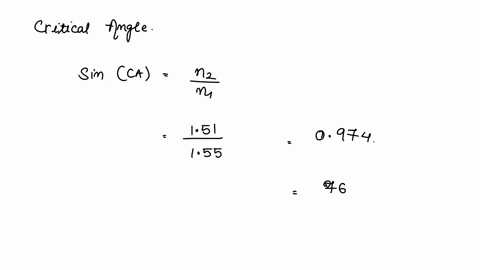 Critical Angle.
Sin (CA) = n2/n1
= 1.51/1.55 = 0.974.
= 76